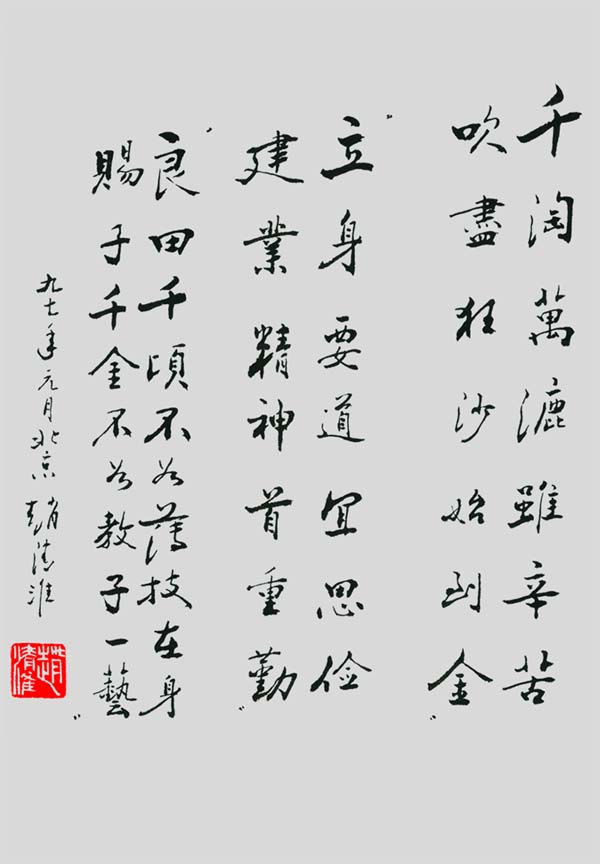 千淘萬漉雖辛苦
吹盡狂沙始到金
立身要道宜思俭
建業精神首重勤
良田千頃不如薄技在身
賜子千金不如教子一藝
九七年元月北京趙清淮
趙清淮